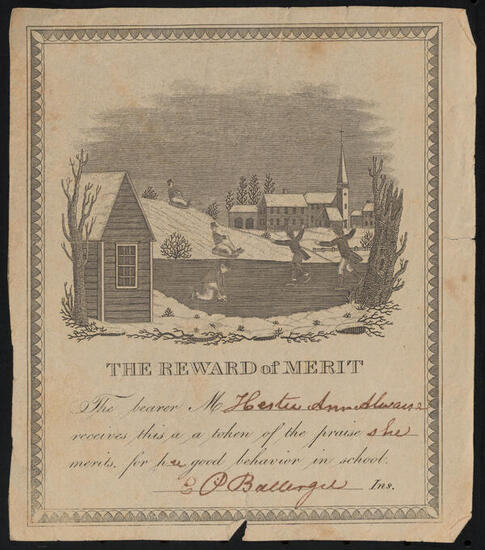 THE REWARD of MERIT
The bearer M Hester Ann Alwaise
receives this a a token of the praise she
merits, for her good behavior in school.
P Ballengee Ins.